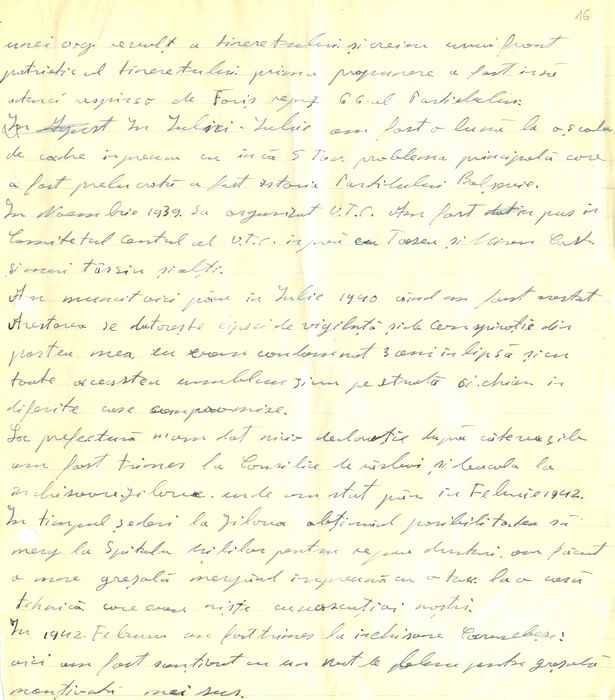 16
unei org. revoluț a tineretului și creiau unui front
patriotic al tineretului prima propunere a fost însă
atunci respinsă de Foriș repr CC al Partidului.
In August In Iulie am fost o lună la o școala
de cadre inpreun cu încă 5 Tov. problema principală care
a fost prelucrată a fost istoria Partidului Bolșevic.
In Noembrie 1939. Sa organizat U.T.C. Am fost pus in
Comitetul Central al U.T.C. și Miron
și alți.
Am muncit aici pîna in Iulie 1940 cînd am fost arestat
Arestarea se datorește lipsei de vigilență și de conspirație din
partea mea, eu eram condamnat 3 ani in lipsă și cu
toate acestea umblam și pe stradă și chiar in
diferite case compromise.
La prefectură nam dat nicio declarație după cîteva zile
am fost trimes la Consiliu de răsboi și deacolo la
inchisoarea Jilava. unde am stat pîn in Februarie 1942.
In timpul șederi la Jilava obținînd posibilitatea să
merg la Spitalu pentru dinturi, am făcut
o mare greșală mergînd inpreună cu o tov. la o casă
tehnică care erau niște cunoscuți ai noștri.
In 1942. Februarie am fost trimes la inchisoare Caransebeș:
aici am fost sancționat cu un vot de pentru greșală
mai sus.